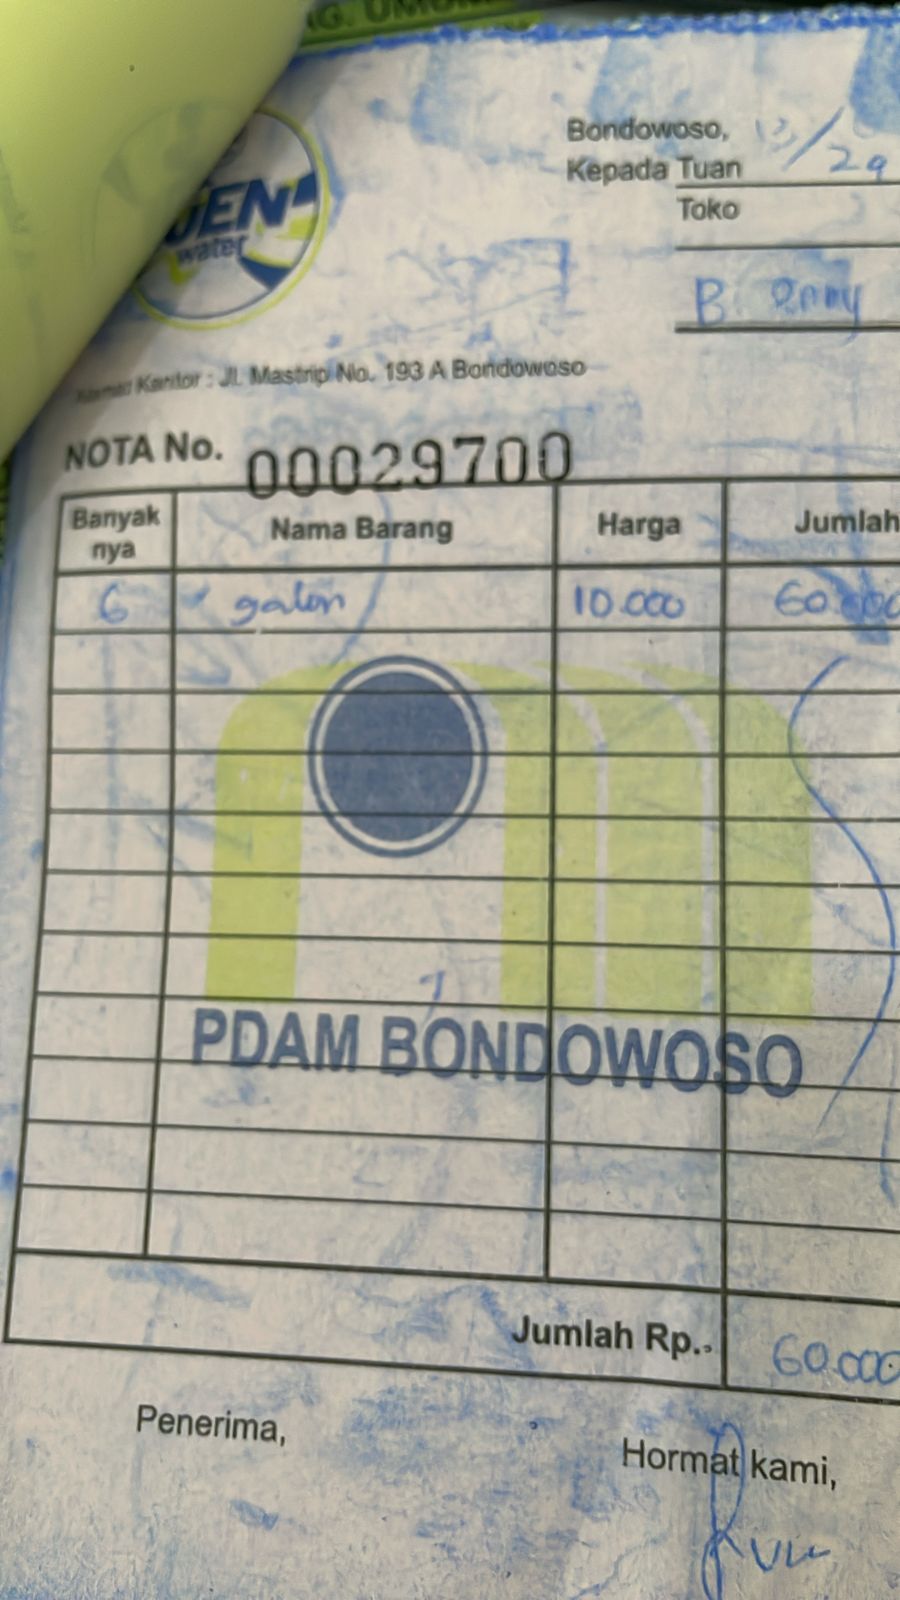 NG. UMUM
JEN
water
Bondowoso, 13/29
Kepada Tuan
Toko
B Renny
Alamat Kantor : Jl. Mastrip No. 193 A Bondowoso
NOTA No. 00029700
Banyak nya Nama Barang Harga Jumlah
6 galon 10.000 60.000
PDAM BONDOWOSO
Jumlah Rp.. 60.000
Penerima,
Hormat kami,